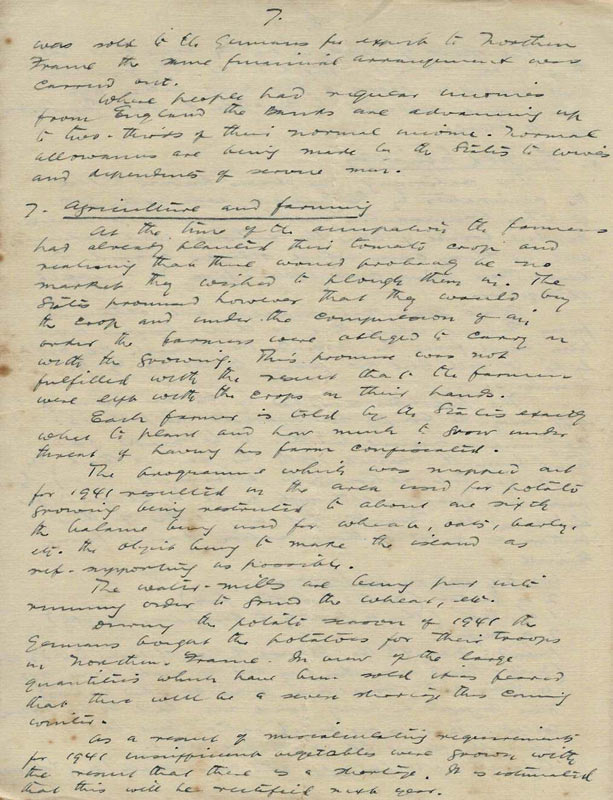 7.
was sold to the Germans for export to Northern
France the same financial arrangement was
carried out.
Where people had regular incomes
from England the Banks are advancing up
to two-thirds of their normal income. Normal
allowances are being made by the States to wives
and dependents of service men.
7. Agriculture and farming
At the time of the occupation the farmers
had already planted their tomato crop and
realising that there would probably be no
market they wished to plough them in. The
States promised however that they would buy
the crop and under the compression of an
order the farmers were obliged to carry on
with the growing. This promise was not
fulfilled with the result that the farmers
were left with the crops on their hands.
Each farmer is told by the States exactly
what to plant and how much to grow under
threat of having his farm confiscated.
The programme which was mapped out
for 1941 resulted in the area used for potato
growing being restricted to about one sixth
the balance being used for wheat, oats, barley,
etc. the object being to make the island as
self-supporting as possible.
The water-mills are being put into
running order to grind the wheat, etc.
During the potato season of 1941 the
Germans bought the potatoes for their troops
in Northern France. In view of the large
quantities which have been sold it is feared
that there will be a severe shortage this coming
winter.
As a result of miscalculating requirements
for 1941 insufficient vegetables were grown with
the result that there is a shortage. It is estimated
that this will be rectified next year.